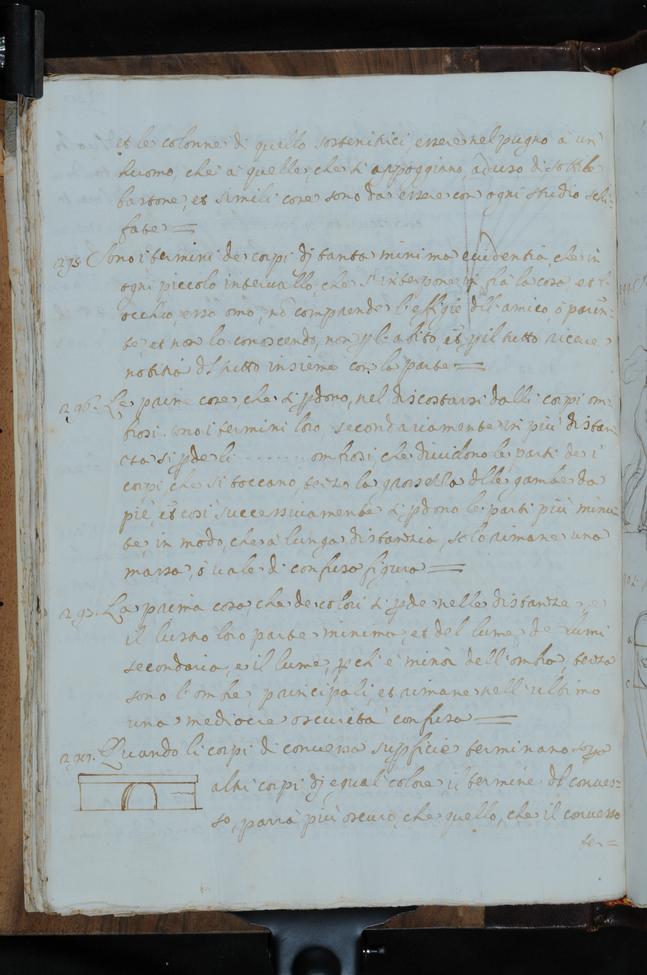 et le colonne di quello sostenitrici, essere nel pugno a un
huomo, che a quelle, che s'appoggiano, ad uso di sottile
bastone, et simili cose sono da essere con ogni studio schi-
fate =
295 Sono i termini de corpi di tanta minima evidentia, che in
ogni piccolo intervallo, che s'interpone in frà la cosa, et l'
occhio, esso omo, nõ comprende l'effigie dell'amico, ò paren-
te, et non lo conoscendo, non p l'abito, et p il tutto riceve
notitia del tutto insieme con la parte =
296. Le prime cose, che si pdono, nel discostarsi dalli corpi om-
brosi, sono i termini loro, secondariamente in più distan
cia si pde li ........ ombrosi che dividono le parti de i
corpi, che si toccano, terzo la grossezza delle gambe da
piè, et così successivamente si pdono le parti più minu
te, in modo, che a lunga distanzia, solo rimane una
massa, ovale di confusa figura =
297. La prima cosa, che de colori si pde nelle distanze, e
il lustro loro parte minima, et del lume de lumi
secondaria, e il lume, pch'è minor dell'ombra, terza
sono l'ombre, principali, et rimane nell'ultimo
una mediocre oscurità confusa =
Quando li corpi di convessa suppficie terminano sopra
altri corpi di egual colore, il termine del conves-
so, parrà più oscuro, che quello, che il convesso
ter=